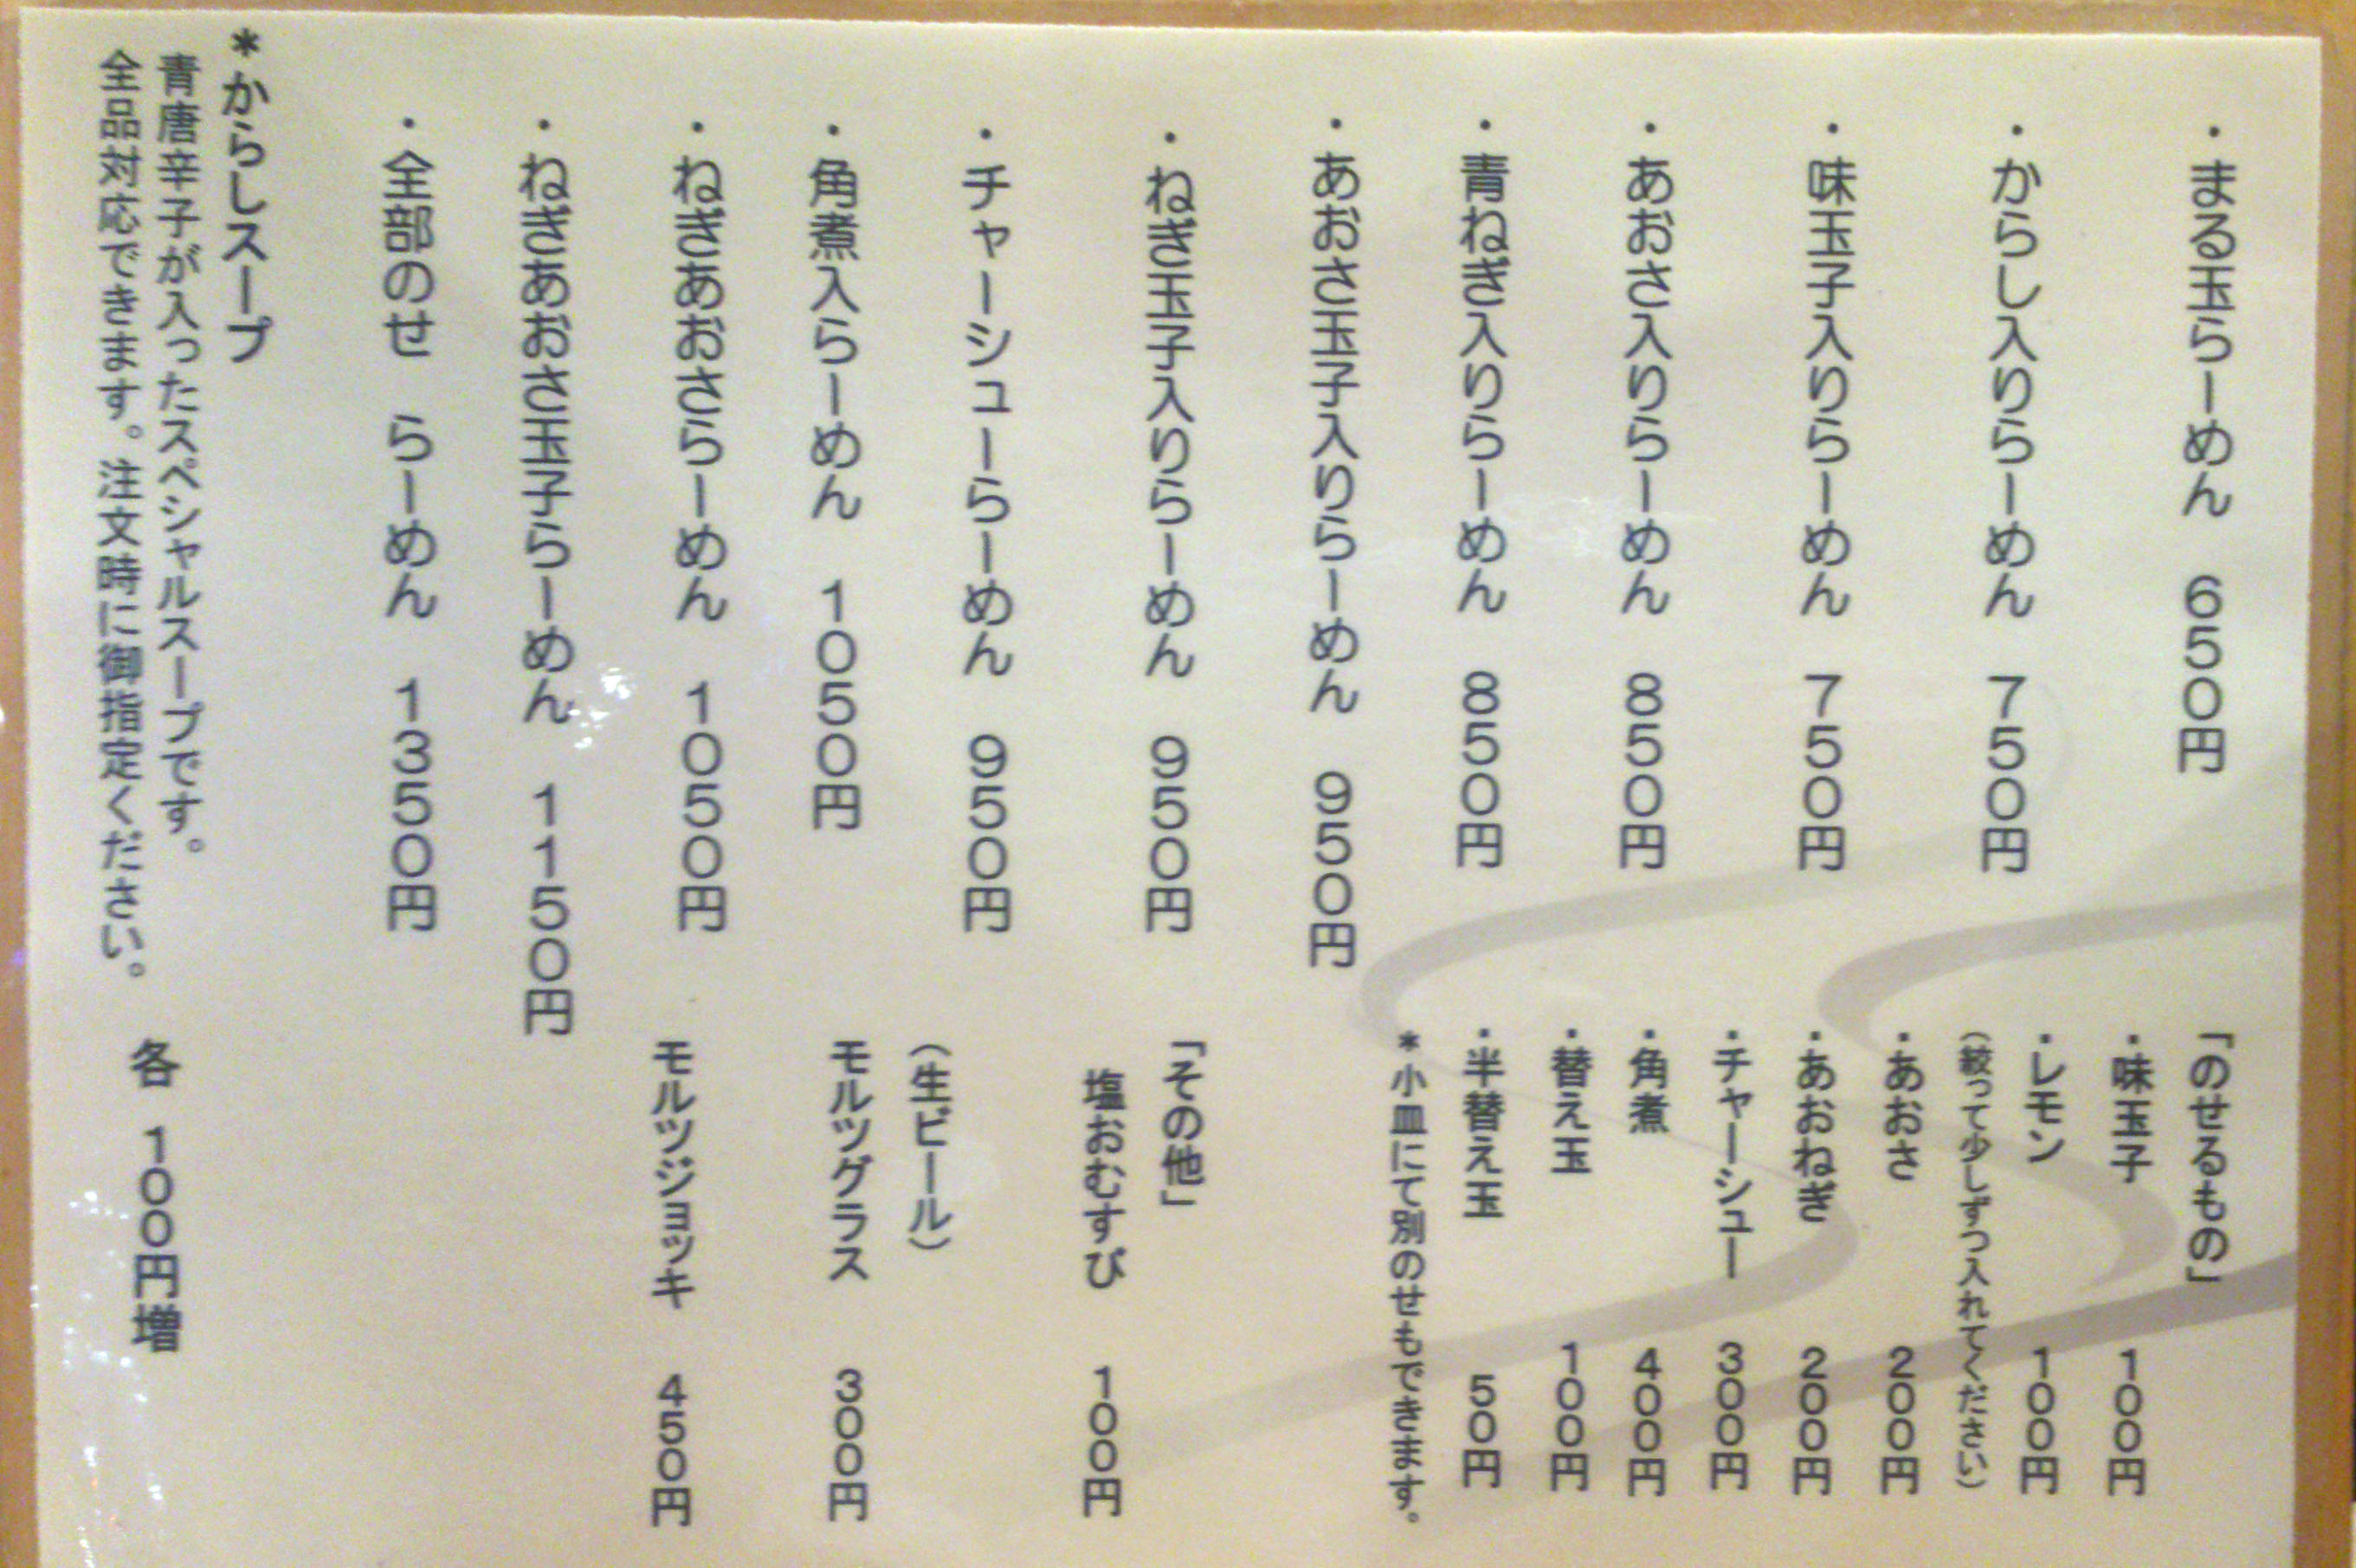 ・まる玉らーめん 650円
・からし入りらーめん 750円
・味玉子入りらーめん 750円
・あおさ入りらーめん 850円
・青ねぎ入りらーめん 850円
・あおさ玉子入りらーめん 950円
・ねぎ玉子入りらーめん 950円
・チャーシューらーめん 950円
・角煮入らーめん 1050円
・ねぎあおさらーめん 1050円
・ねぎあおさ玉子らーめん 1150円
・全部のせ らーめん 1350円
「のせるもの」
・味玉子 100円
・レモン 100円
(絞って少しずつ入れてください)
・あおさ 200円
・あおねぎ 200円
・チャーシュー 300円
・角煮 400円
・替え玉 100円
・半替え玉 50円
*小皿にて別のせもできます。
「その他」
塩おむすび 100円
(生ビール)
モルツグラス 300円
モルツジョッキ 450円
*からしスープ
青唐辛子が入ったスペシャルスープです。
全品対応できます。注文時に御指定ください。
各 100円増